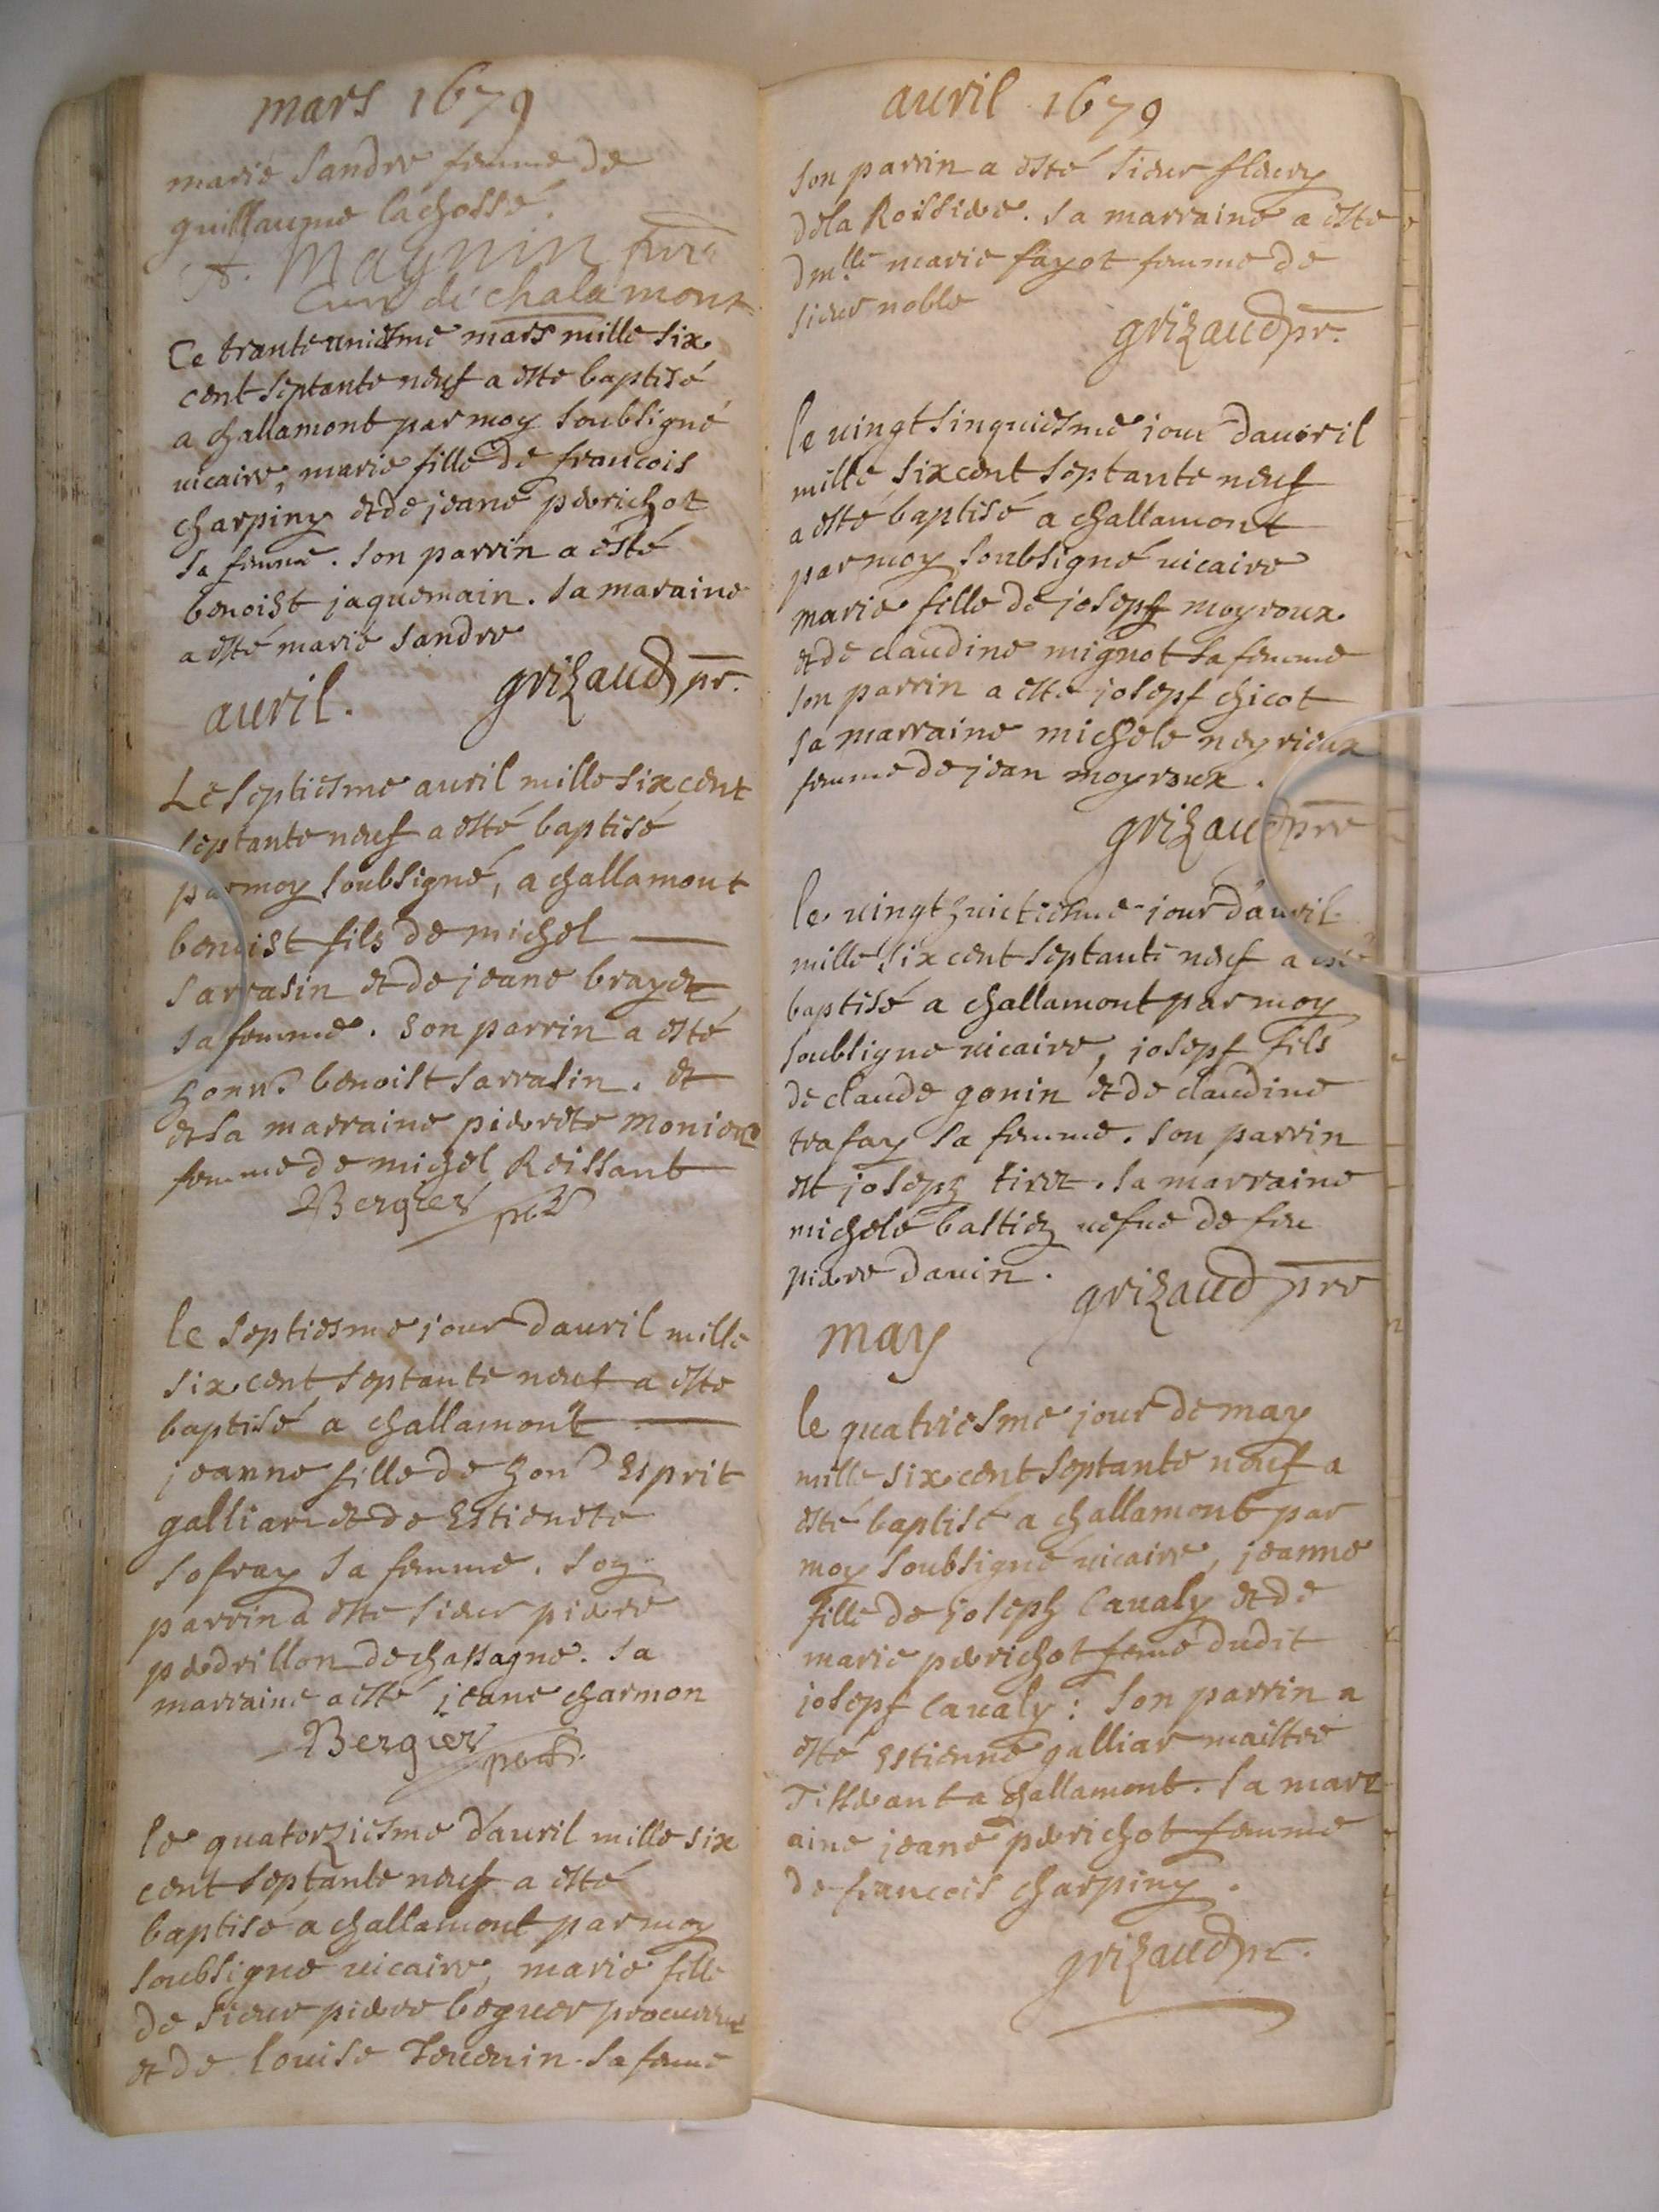 mars 1679
marie sandre femme de
guillaume lachossé.
A. Magnin
Curé de chalamont
Ce trante uniesme mars mille six
cent septante neuf a esté baptisé
a challamont par moy soubsigné
vicaire, marie fille de francois
charpiny et de jeane perichot
sa femme. son parrin a esté
benoist jaquemain. sa maraine
a esté marie sandre
grizaud pr.
auril.
Le septiesme auril mille six cent
septante neuf a esté baptisé
par moy soubsigné, a challamont
benoist fils de michel
sarrasin et de jeane brayet
sa femme. son parrin a esté
honn. benoist sarrasin. et
et sa marraine pierrete monier
femme de michel Roissant
Bergier pbr
le septiesme jour dauril mille
six cent septante neuf a este
baptisé a challamont
jeanne fille de hon. Esprit
galliar et de Estienete
sofray sa femme. soy
parrin a este sieur pierre
pedrillon de chassagne. sa
marraine a esté jeane charmon
Bergier pbr.
le quatorziesme d'auril mille six
cent septante neuf a esté
baptisé a challamont par moy
soubsigné vicaire, marie fille
de sieur pierre beguer procureur
et de louise Teuenin sa femme
auril 1679
son parrin a esté sieur fleury
dela Roissiere. sa marraine a este
dmlle marie fayot femme de
sieur noble
grizaud pr.
le uingt sinquiesme jour dauuril
mille six cent septante neuf
a esté baptisé a challamont
par moy soubsigné uicaire
marie fille de joseph moyroux
et de claudine mignot sa femme
son parrin a esté josepf chicot
sa marraine michele neyrieux
femme de jean moyroux.
grizaud pre
le uingt huictiesme jour d'auril
mille six cent septante neuf a esté
baptisé a challamont par moy
soubsigne uicaire, josepf fils
de claude gonin et de claudine
trafay sa femme. son parrin
est joseph tiret. sa marraine
michele bastiez uefue de feu
pierre dauin.
grizaud pre
may
le quatriesme jour de may
mille six cent septante neuf a
esté baptisé a challamont par
moy soubsigné uicaire, jeanne
fille de joseph Caualy et de
marie perichot feme dudit
josepf Caualy: son parrin a
esté Estienne galliar maistre
Tisseant a challamont. sa marr
aine jeane perichot femme
de francois charpiny.
grizaud pr.